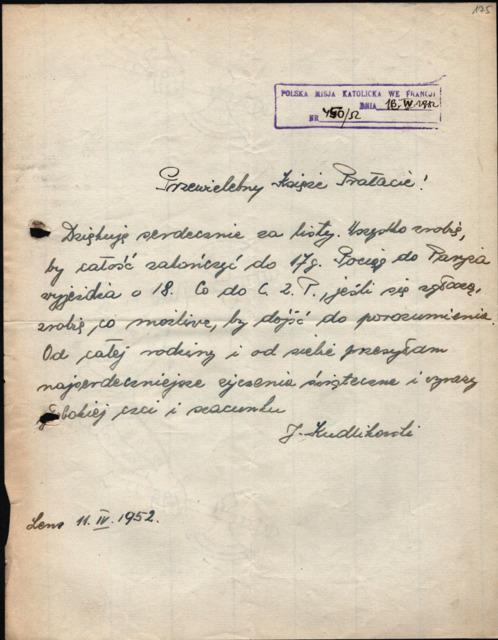 175
POLSKA MISJA KATOLICKA WE FRANCJI
DNIA 16.IV 1952
NR 450/52
Przewielebny Księże Prałacie!
Dziękuję serdecznie za listy. Wszystko zrobię,
by całość zakończyć do 17g. Pociąg do Paryża
wyjeżdża o 18. Co do C.Z.P., jeśli się zgłoszą,
zrobię co możliwe, by dojść do porozumienia.
Od całej rodziny i od siebie przesyłam
najserdeczniejsze życzenia świąteczne i wyrazy
głębokiej czci i szacunku
J. Kudlikowski
Lens 11.IV.1952.